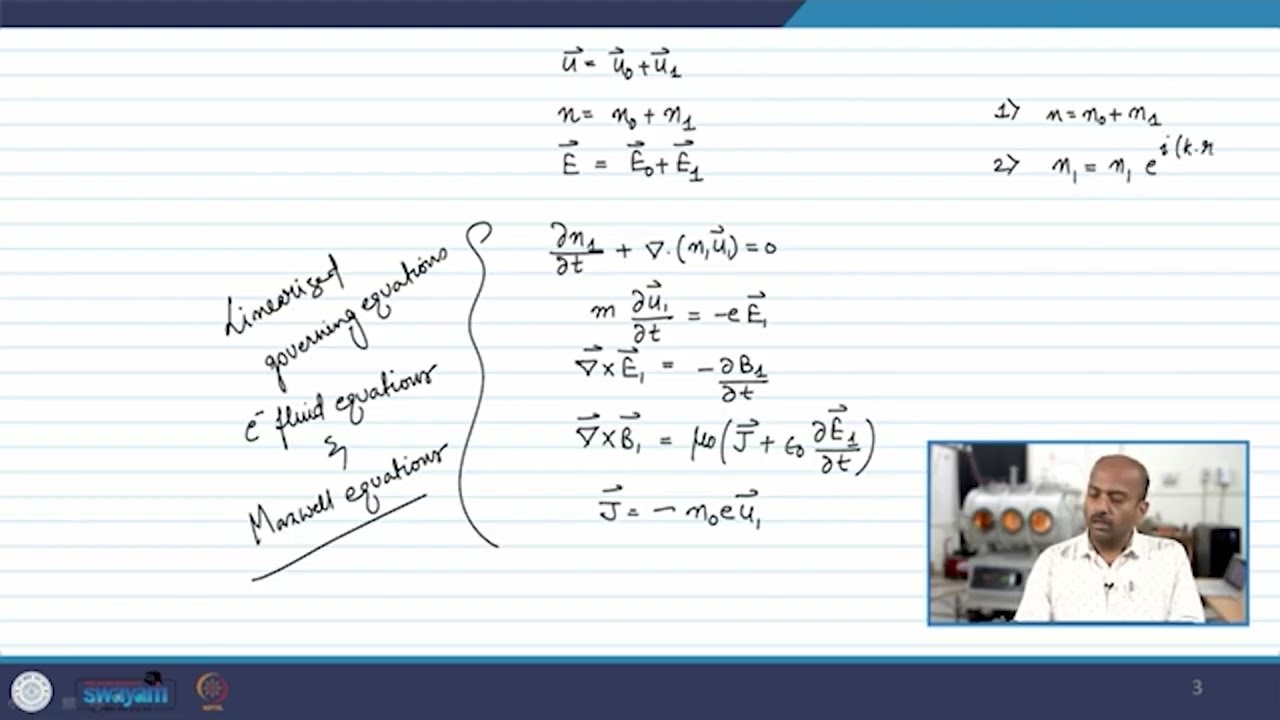 u⃗ = u⃗₀ + u⃗₁
n = n₀ + n₁
E⃗ = E⃗₀ + E⃗₁
1> n = n₀ + n₁
2> n₁ = n₁ e^{i(k.r
Linearized
governing equations
e⁻ fluid equations
&
Maxwell equations
∂n₁/∂t + ∇.(n₁u⃗₁) = 0
m ∂u⃗₁/∂t = -e E⃗₁
∇⃗ × E⃗₁ = -∂B₁/∂t
∇⃗ × B⃗₁ = μ₀(J⃗ + ε₀ ∂E⃗₁/∂t)
J⃗ = - n₀eu⃗₁
swayam
3